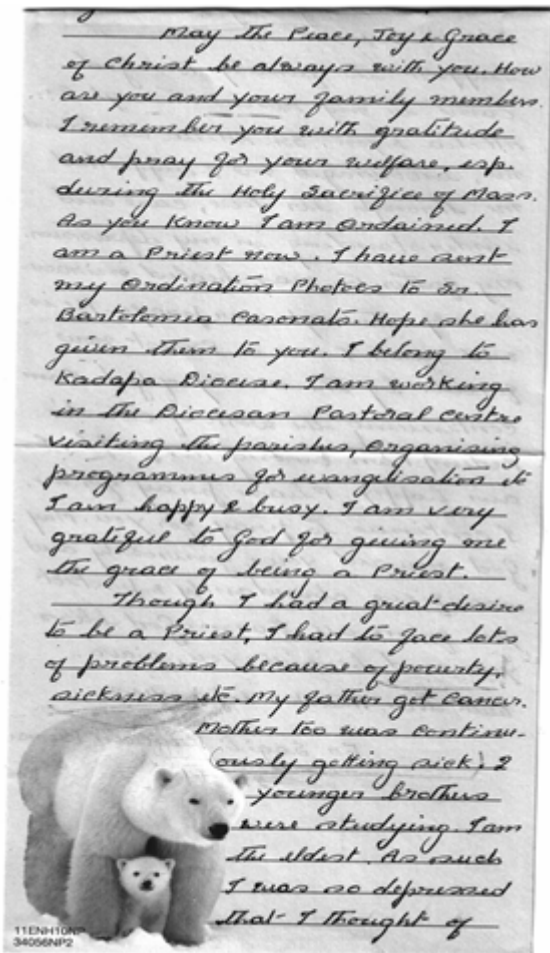 May the Peace, Joy & Grace
of Christ be always with you. How
are you and your family members.
I remember you with gratitude
and pray for your welfare, esp.
during the Holy Sacrifice of Mass.
As you know I am ordained. I
am a Priest now. I have sent
my ordination Photoes to Sr.
Bartolomea Casonato. Hope she has
given them to you. I belong to
Kadapa Diocese. I am working
in the Diocesan Pastoral Centre
visiting the parishes, organising
programmes for evanglisation etc
I am happy & busy. I am very
grateful to God for giving me
the grace of being a Priest.
Though I had a great desire
to be a Priest, I had to face lots
of problems because of poverty,
sickness etc. My father got Cancer.
Mother too was continu-
ously getting sick, 2
younger brothers
were studying. I am
the eldest. As such
I was so depressed
that I thought of
11ENH10NP
34056NP2